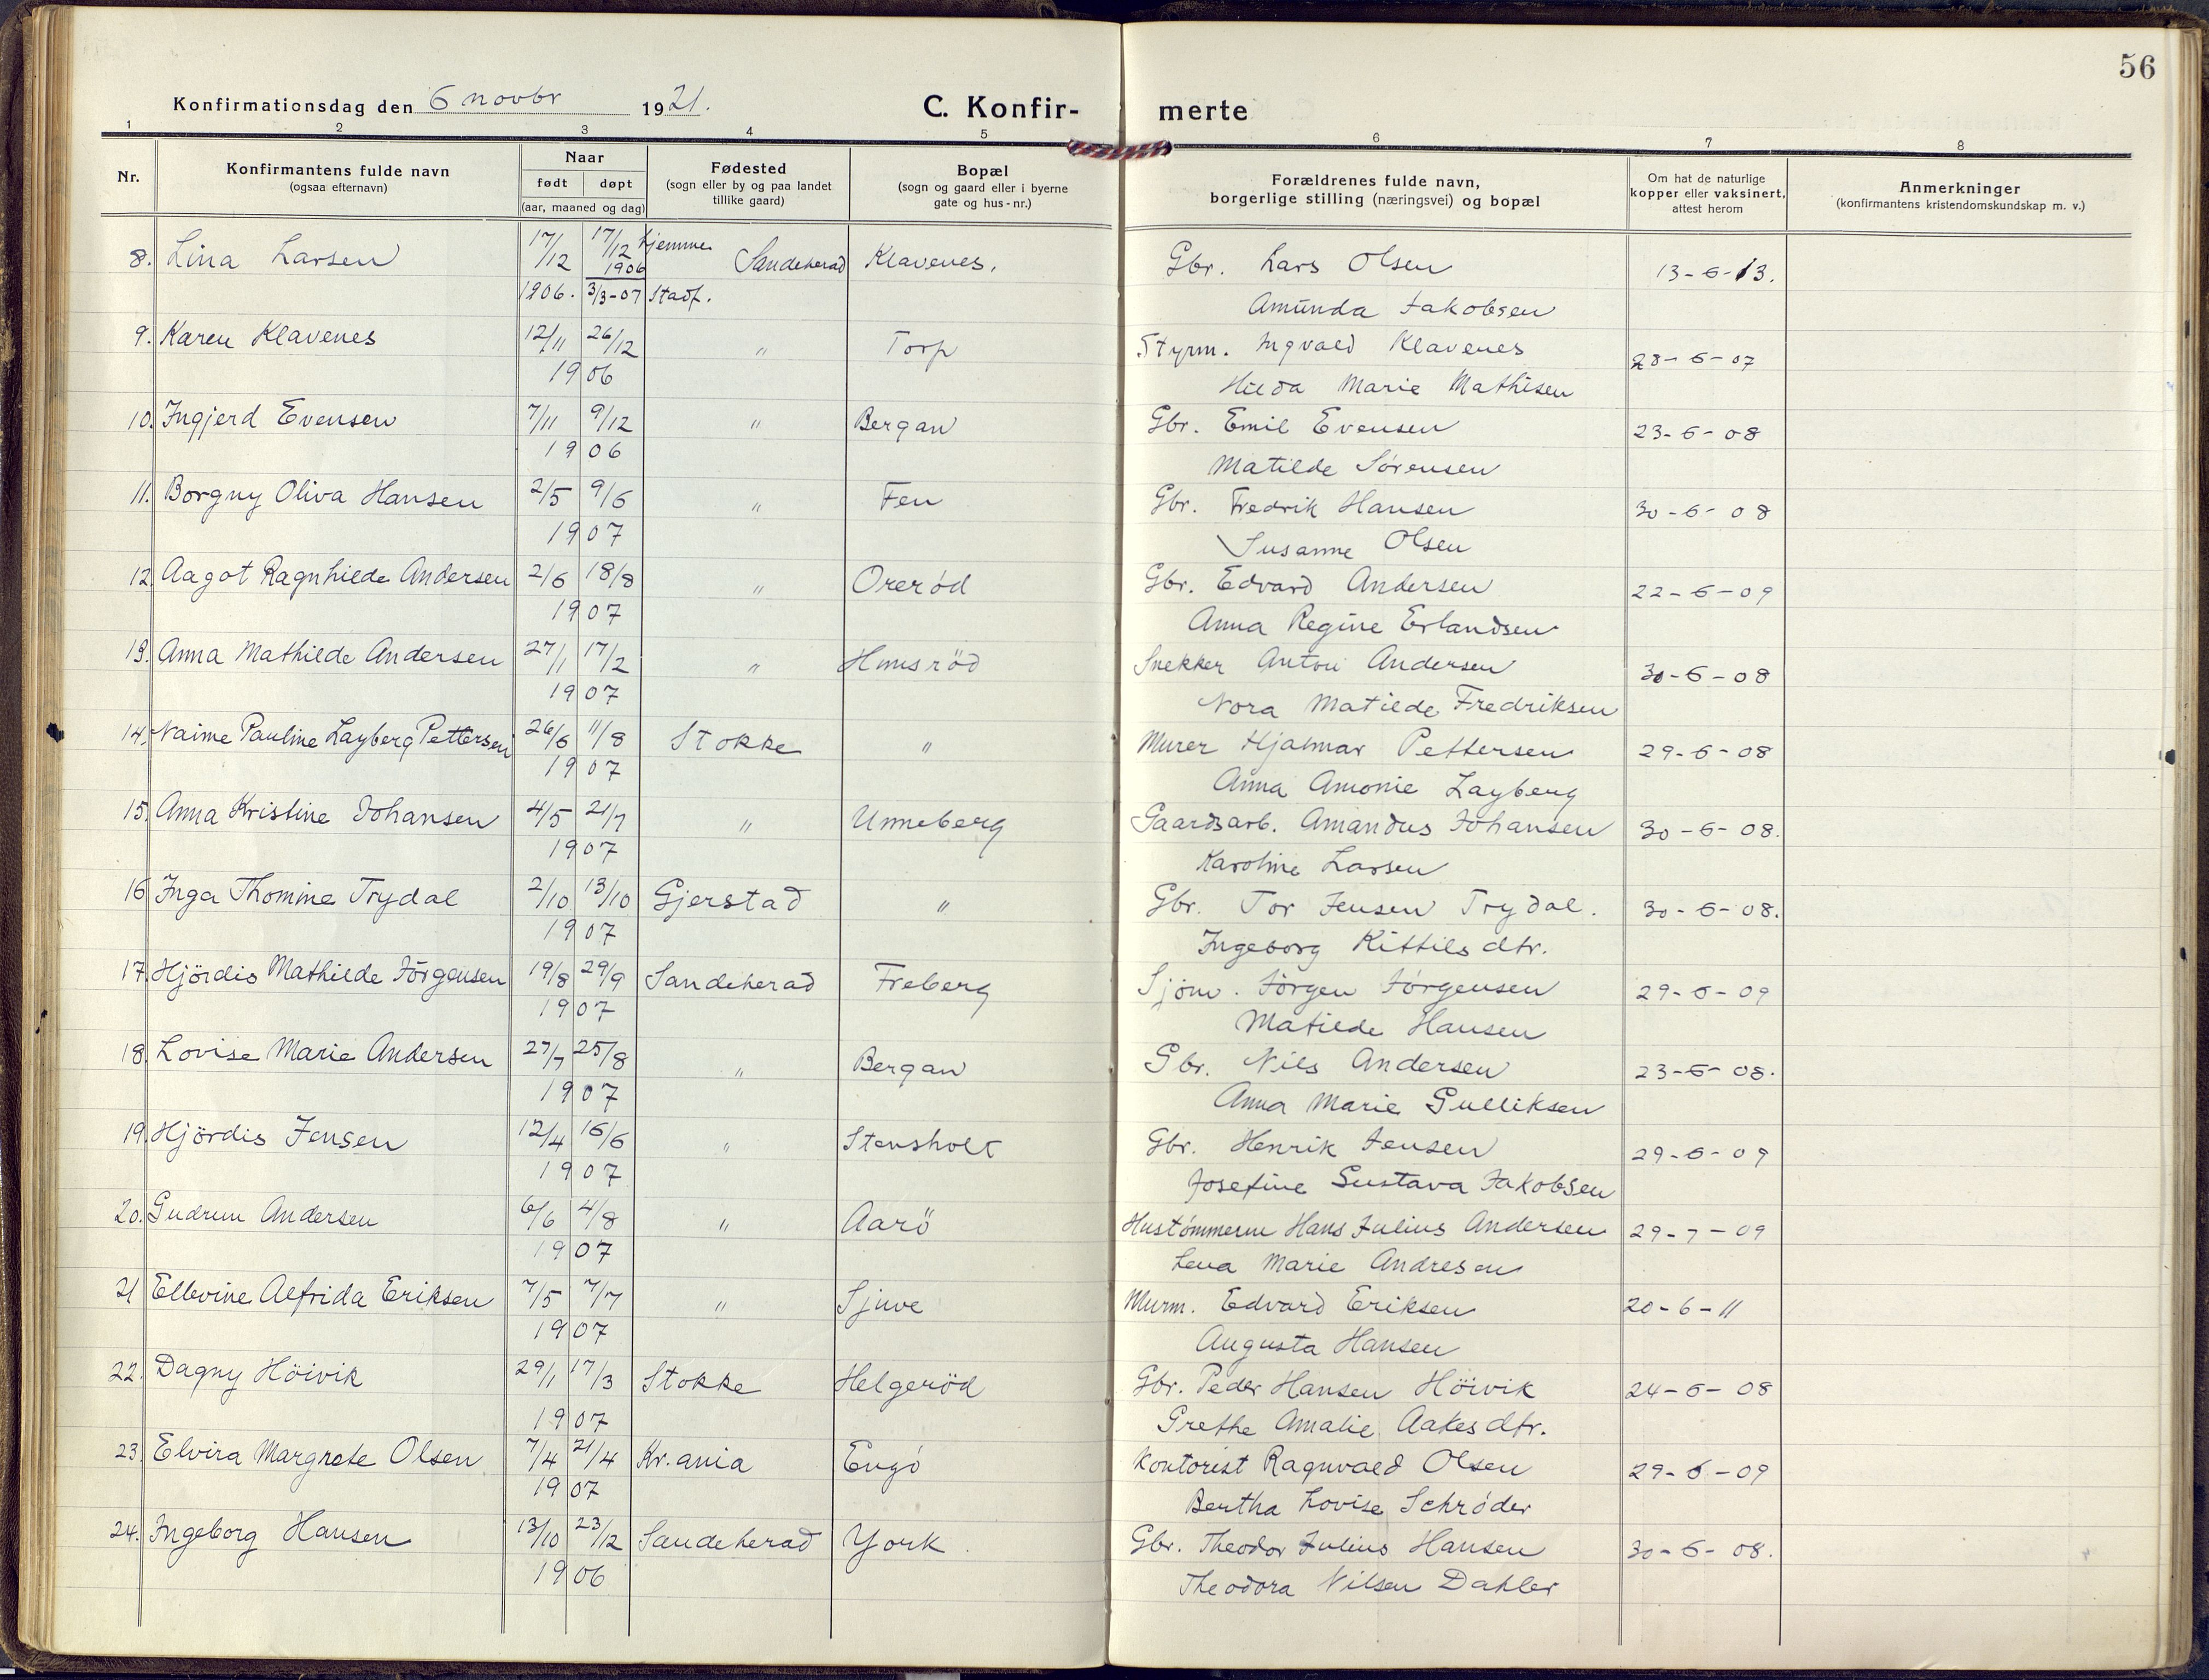 56
Konfirmationsdag den 6 novbr 1921. C. Konfir- merte
1 2 3 4 5 6 7 8
Nr. Konfirmantens fulde navn (ogsaa efternavn) Naar født døpt (aar, maaned og dag) Fødested (sogn eller by og paa landet tillike gaard) Bopæl (sogn og gaard eller i byerne gate og hus-nr.) Forældrenes fulde navn, borgerlige stilling (næringsvei) og bopæl Om hat de naturlige kopper eller vaksinert, attest herom Anmerkninger (konfirmantens kristendomskundskap m. v.)
8. Lina Larsen 17/12 17/12 hjemme Sandeherad Klavenes. Gbr. Lars Olsen 13-6-13.
1906
1906. 3/3-07 Stadf. Amunda Jakobsen
9. Karen Klavenes 12/11 26/12 " Torp Styrm. Ingvald Klavenes 28-6-07
1906 Hilda Marie Mathisen
10. Ingjerd Evensen 7/11 9/12 " Bergan Gbr. Emil Evensen 23-6-08
1906 Matilde Sørensen
11. Borgny Oliva Hansen 2/5 9/6 " Fen Gbr. Fredrik Hansen 30-6-08
1907 Susanne Olsen
12. Aagot Ragnhilde Andersen 2/6 18/8 " Orerød Gbr. Edvard Andersen 22-6-09
1907 Anna Regine Erlandsen
13. Anna Mathilde Andersen 27/1 17/2 " Hunsrød Snekker Anton Andersen 30-6-08
1907 Nora Matilde Fredriksen
14. Naime Pauline Layberg Pettersen 26/6 11/8 Stokke " Murer Hjalmar Pettersen 29-6-08
1907 Anna Amonie Layberg
15. Anna Kristine Johansen 4/5 21/7 " Unneberg Gaardsarb. Amandus Johansen 30-6-08.
1907 Karoline Larsen
16 Inga Thomine Trydal 2/10 13/10 Gjerstad " Gbr. Tor Jensen Trydal. 30-6-08.
1907 Ingeborg Kittilsdtr.
17. Hjördis Mathilde Jörgensen 19/8 29/9 Sandeherad Freberg Sjöm. Jörgen Jörgensen 29-6-09
1907 Matilde Hansen
18. Lovise Marie Andersen 27/7 25/8 " Bergan Gbr. Nils Andersen 23-6-08.
1907 Anna Marie Gulliksen
19. Hjördis Jensen 12/4 16/6 " Stensholt Gbr. Henrik Jensen 29-6-09
1907 Josefine Gustava Jakobsen
20. Gudrun Andersen 6/6 4/8 " Aarö Hustømmerm Hans Julius Andersen 29-7-09
1907 Lena Marie Andresen
21 Ellevine Alfrida Eriksen 7/5 7/7 " Sjuve Murm. Edvard Eriksen 20-6-11
1907 Augusta Hansen
22. Dagny Höivik 29/1 17/3 Stokke Helgeröd Gbr. Peder Hansen Höivik 24-6-08
1907 Grethe Amalie Aakesdtr.
23. Elvira Margrete Olsen 7/4 21/4 Kr.ania Engø Kontorist Ragnvald Olsen 29-6-09
1907 Bertha Lovise Schrøder
24. Ingeborg Hansen 13/10 23/12 Sandeherad York. Gbr. Theodor Julius Hansen 30-6-08.
1906 Theodora Nilsen Dahler